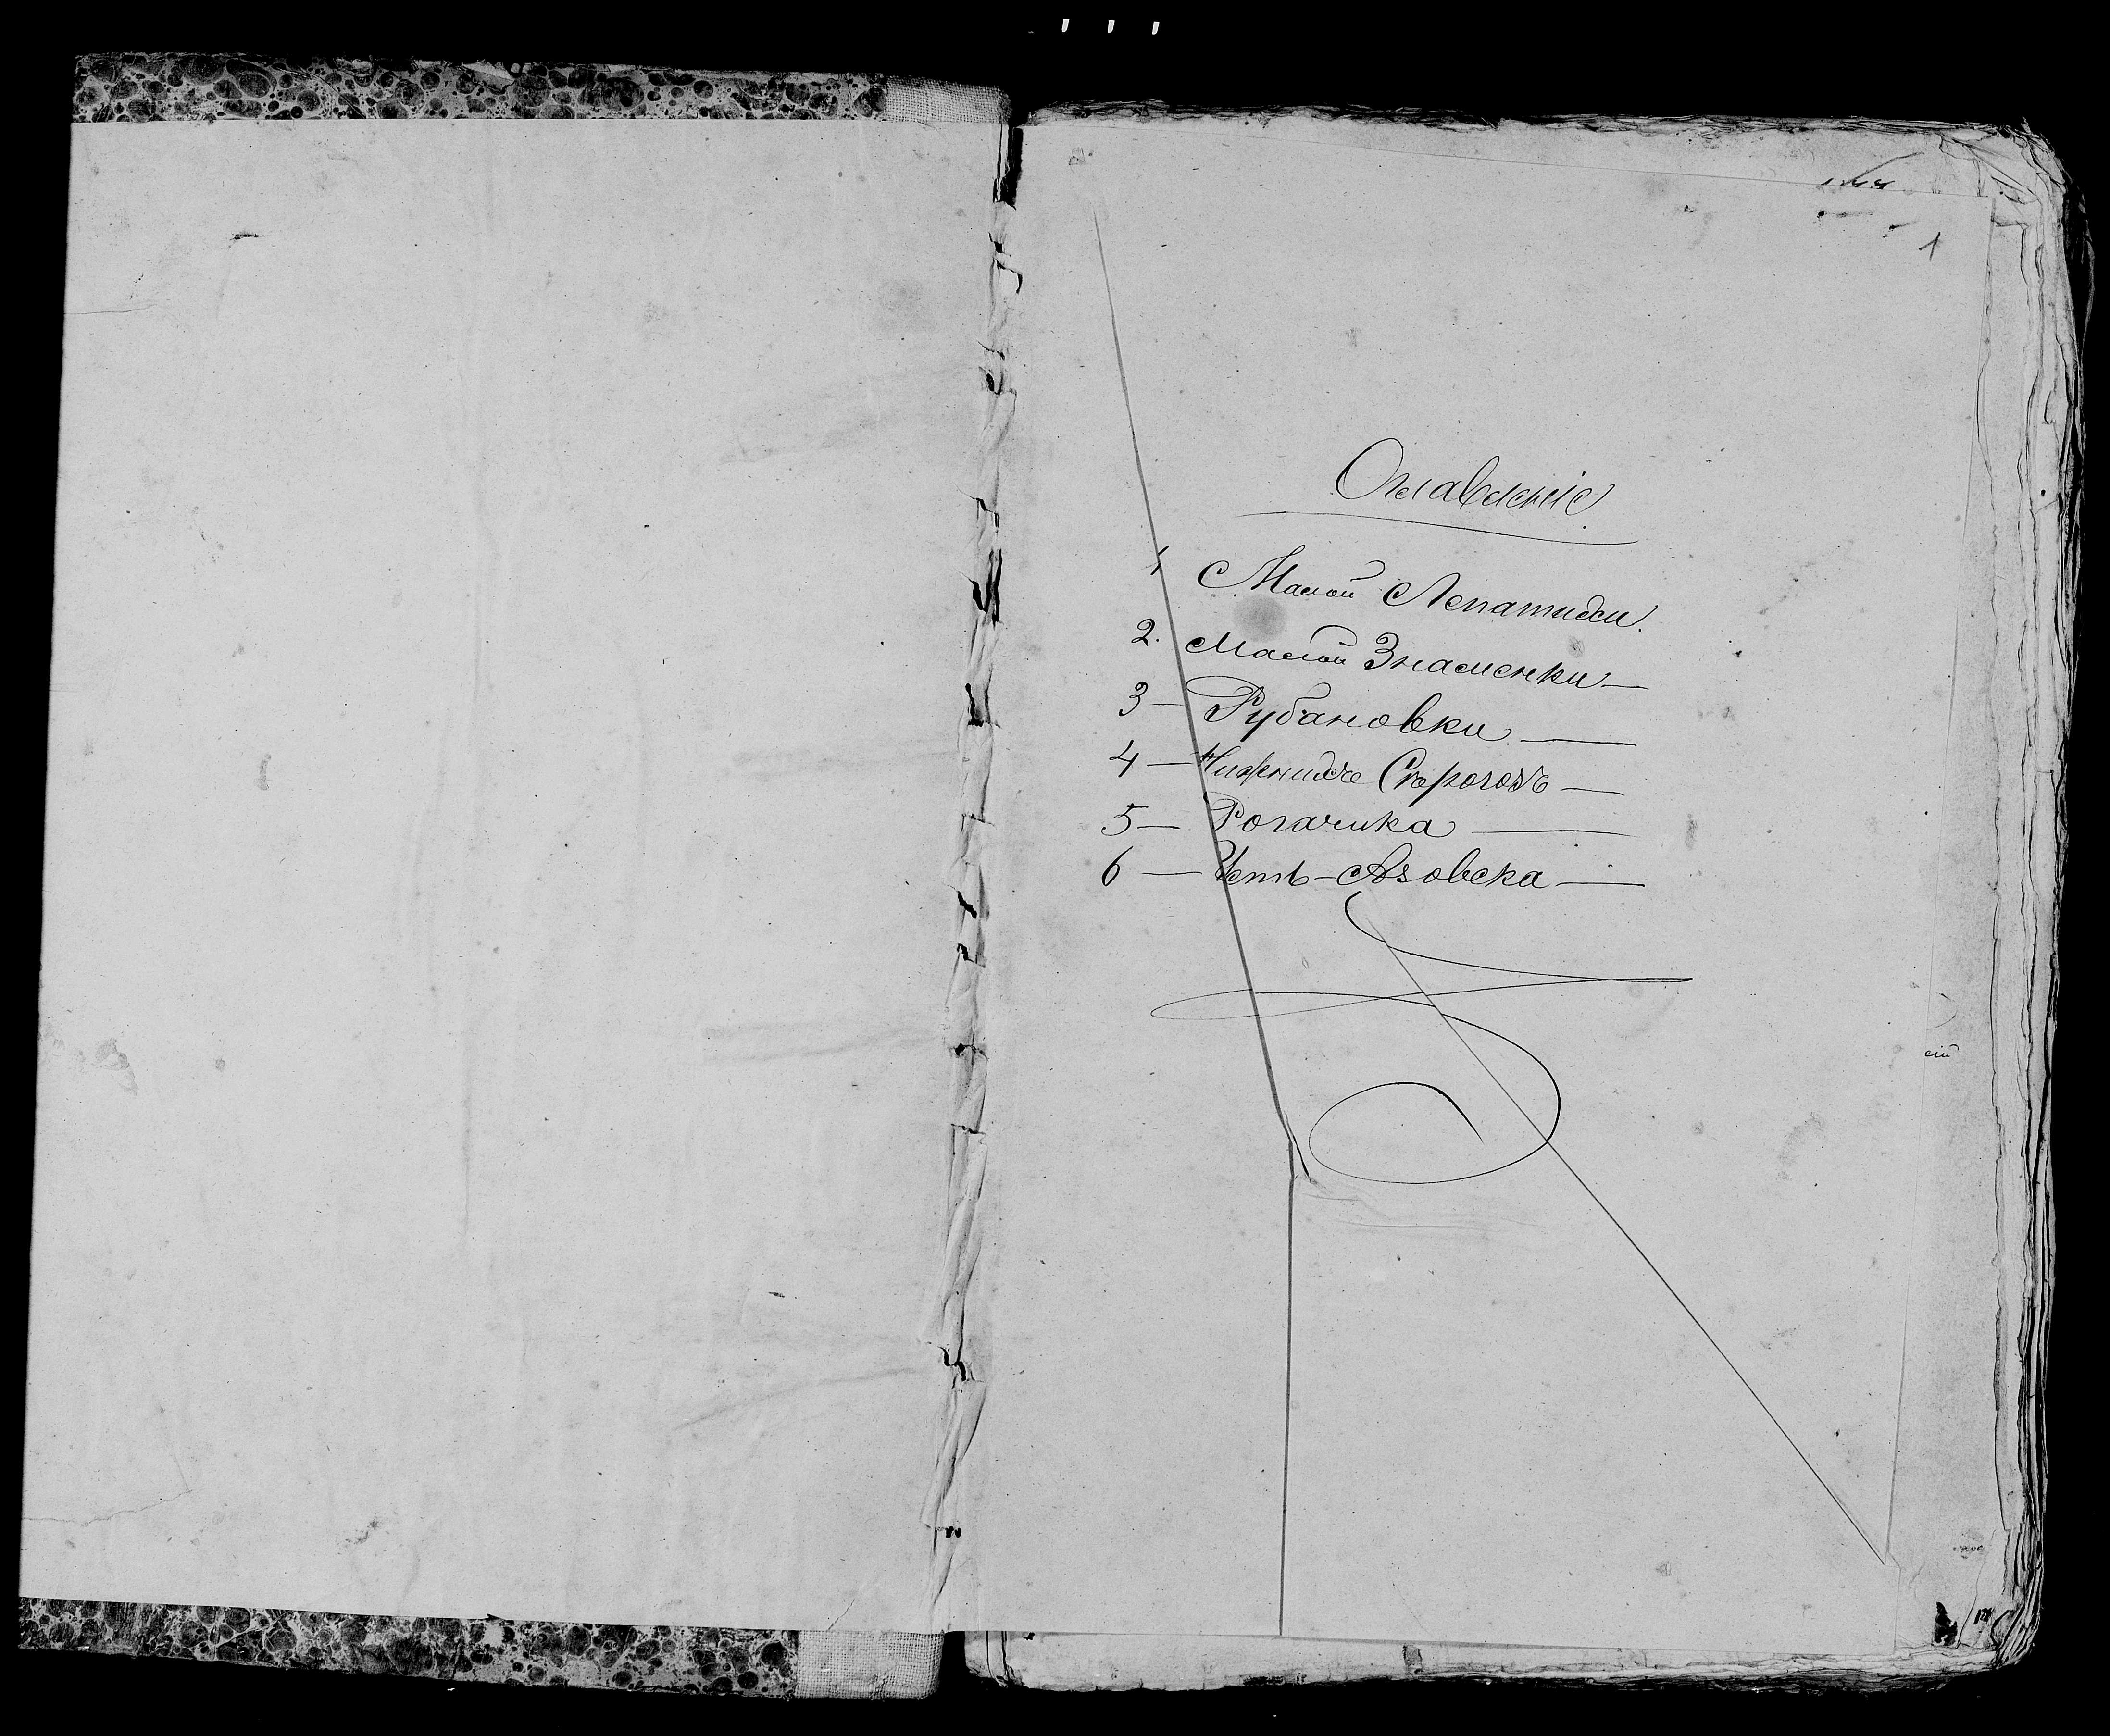 1
Оглавленіе
1 Малой Лепатихи.
2. Малой Знаменки —
3 — Рубановки —
4 — Нижнихъ Серогозъ —
5 — Рогачика —
6 — Усть-Азовска —